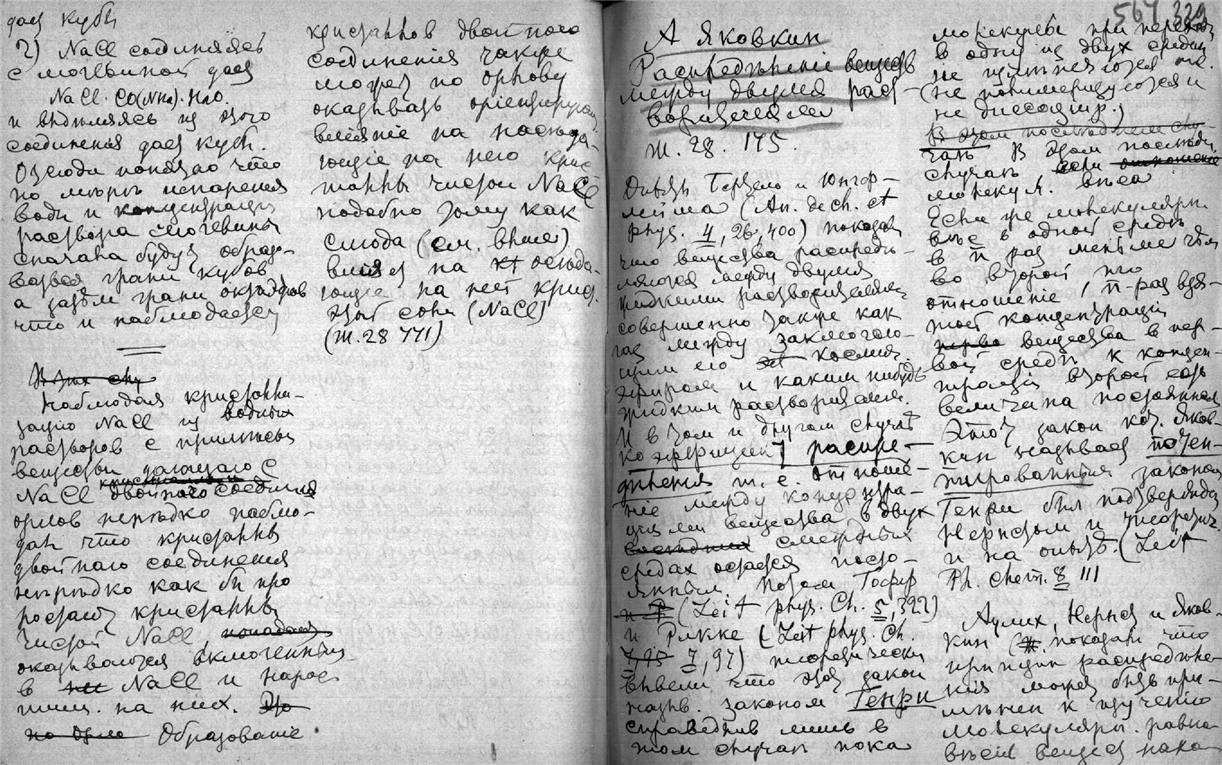 дает кубы
2) NaCl соединяясь
с мочевиной дает
NaCl·CO(NH2)·H2O.
и выделяясь из этого
соединенья дает куб.
Отсюда понятно что
по мере испарения
воды и концентрации
раствора мочевины
сначала будут образо-
ваться грани кубов
а затем грани октаэдров
что и наблюдается
Наблюдая кристалли-
зацию NaCl из водных
растворов с примесью
вещества дающаго с
NaCl двойного соединия
Орлов нередко наблю-
дал что кристаллы
двойного соединения
нередко как бы про
ростают кристаллы
чистой NaCl,
оказываются включенными
в NaCl и нарос
шими на них.
Образование
кристаллов двойного
соединения также
может по Орлову
оказывать ориентирующ.
влияние на наседа-
ющие на него крис
таллы чистой NaCl
подобно тому как
слюда (см. выше)
влияет на оседа-
ющие на неё крист.
этой соли (NaCl)
(Ж.28 771)
567 329
А Яковкин
Распределение веществ
между двумя раст-
ворителями
Ж. 28. 175.
Опыты Бертело и Юнгф-
лейша (An. de ch. et
phys. 4, 26, 400) показали
что вещества распреде-
ляются между двумя
жидкими растворителями
совершенно также как
газ между
или
и каким нибудь
жидким растворителем.
И в том и другом случае
коэфициент распре-
деления т.е. отноше-
ние между концентра-
циями вещества в двух
смежных
средах остается посто-
янным. Потом
(Zeit phys. Ch. 5, 322)
и Рикке (Zeit phys. Ch.
7, 97) теоретически
вывели что этот закон
назыв. законом Генри
справедлив лишь в
том случае пока
молекулы при переходе
в одни из двух средин
не изменяются т.е.
(не полимеризуются и
не диссоциир.)
В этом последнем слу-
чае В этом последн.
случае если отношение
молекул. веса
Если же молекулярн.
вес в одной среде
в n раз меньше чем
во второй то
отношение, n-раз взя-
той концентрации
вещества в пер-
вой среде к концен-
трации второй есть
величина постоянная
Этот закон кот. Яков-
кин называет потен-
цированным законом
Генри был подтвержден
Нернстом и теоретич
и на опыте. (Zeit
Ph. chem. 8 111
Аулих, Нернст и Яков
кин показали что
принцип распределе-
ния может быть при-
менен к изучению
молекулярн. равно-
весия веществ нахо